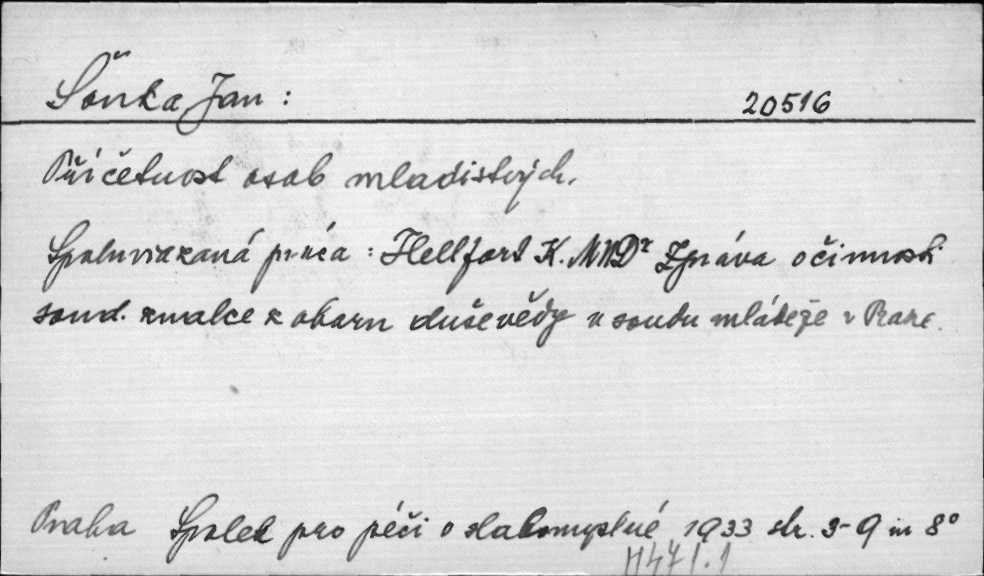 Šonka, Jan : 20516
Příčetnost osob mladistvých.
Spoluviazaná práca : Hellfort K. MUDr Zpráva o činnosti
soud. znalce z oboru duševědy u soudu mládeže v Praze.
Praha Spolek pro péči o slabomyslné 1933 str. 3-9 in 8°